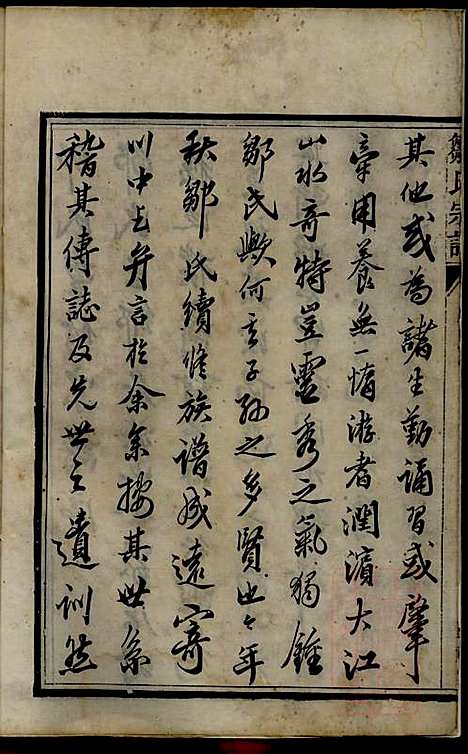 其他或為諸生勤誦習或肇
牽用養無一惰游者潤濱大江
山水奇特豈靈秀之氣獨鍾
鄒氏歟何其子孫之多賢也今年
秋鄒氏續修族譜成遠寄
川中乞弁言於余余按其世系
稽其傳誌及先世之遺訓然
鄒氏宗譜